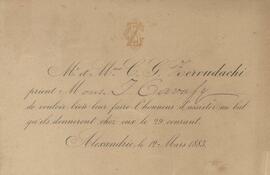 Mr et Mme C. G. Zervudachi
prient Mons. J. Cervafy
de vouloir bien leur faire l'honneur d'assister au bal
qu'ils donneront chez eux le 29 courant.
Alexandrie, le 12 Mars 1883.